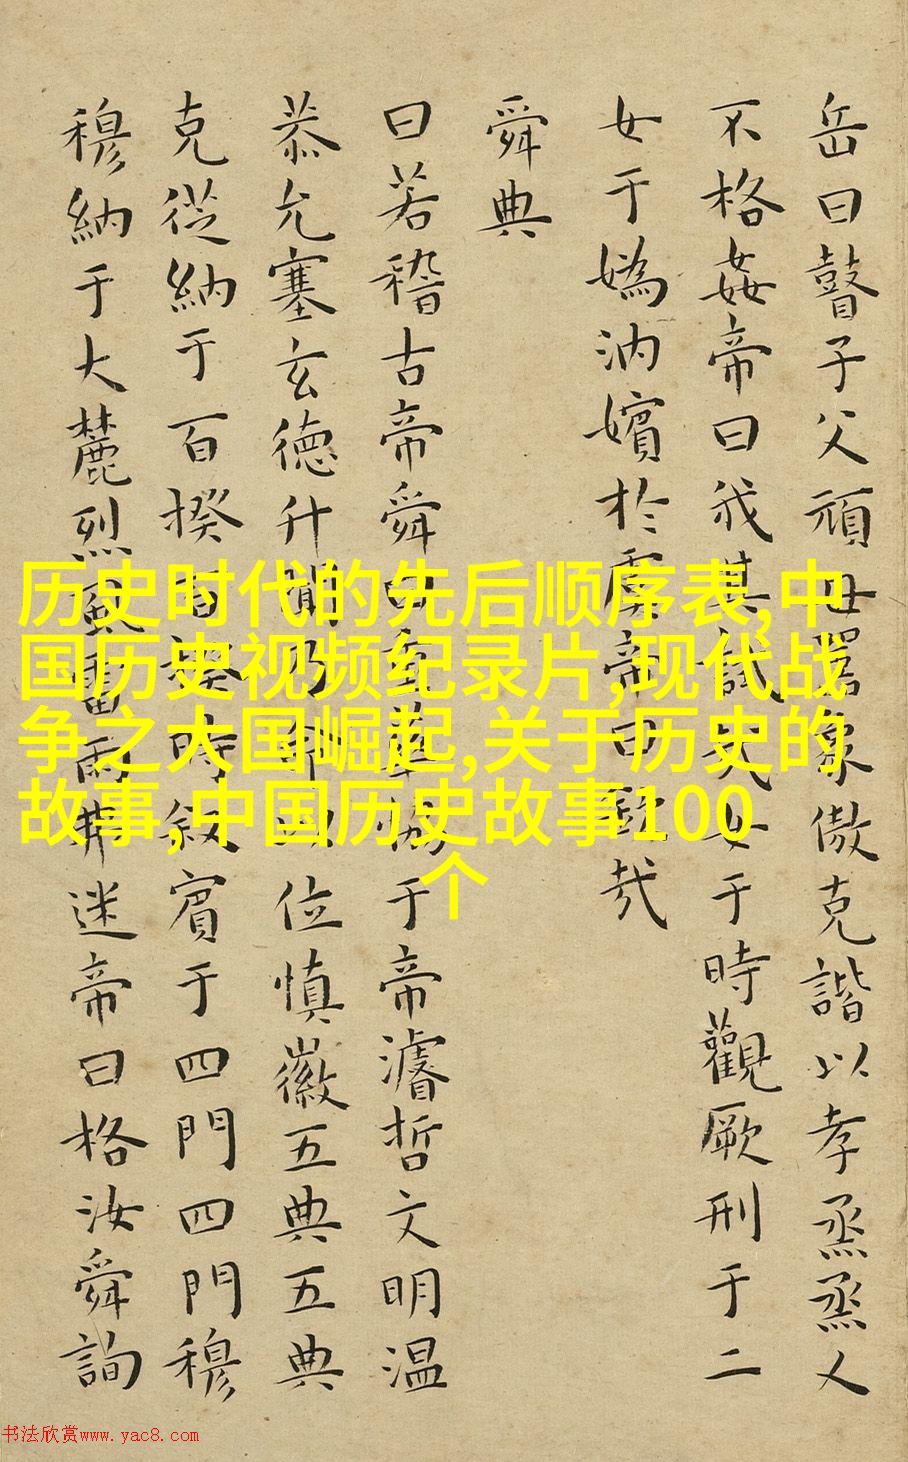 岳曰瞽子父頑母嚚象傲克諧以孝烝烝乂
不格姦帝曰我其試哉女于時觀厥刑于二
女于媯汭嬪於虞帝曰欽哉
舜典
曰若稽古帝舜曰重華協于帝濬哲文明温
恭允塞玄徳升聞乃命以位慎徽五典五典
克從納于百揆百揆時敘賓于四門四門穆
穆納于大麓烈風雷雨弗迷帝曰格汝舜詢
历史时代的先后顺序表,中
国历史视频纪录片,现代战
争之大国崛起,关于历史的
故事,中国历史故事100
个
书法欣赏www.yac8.com